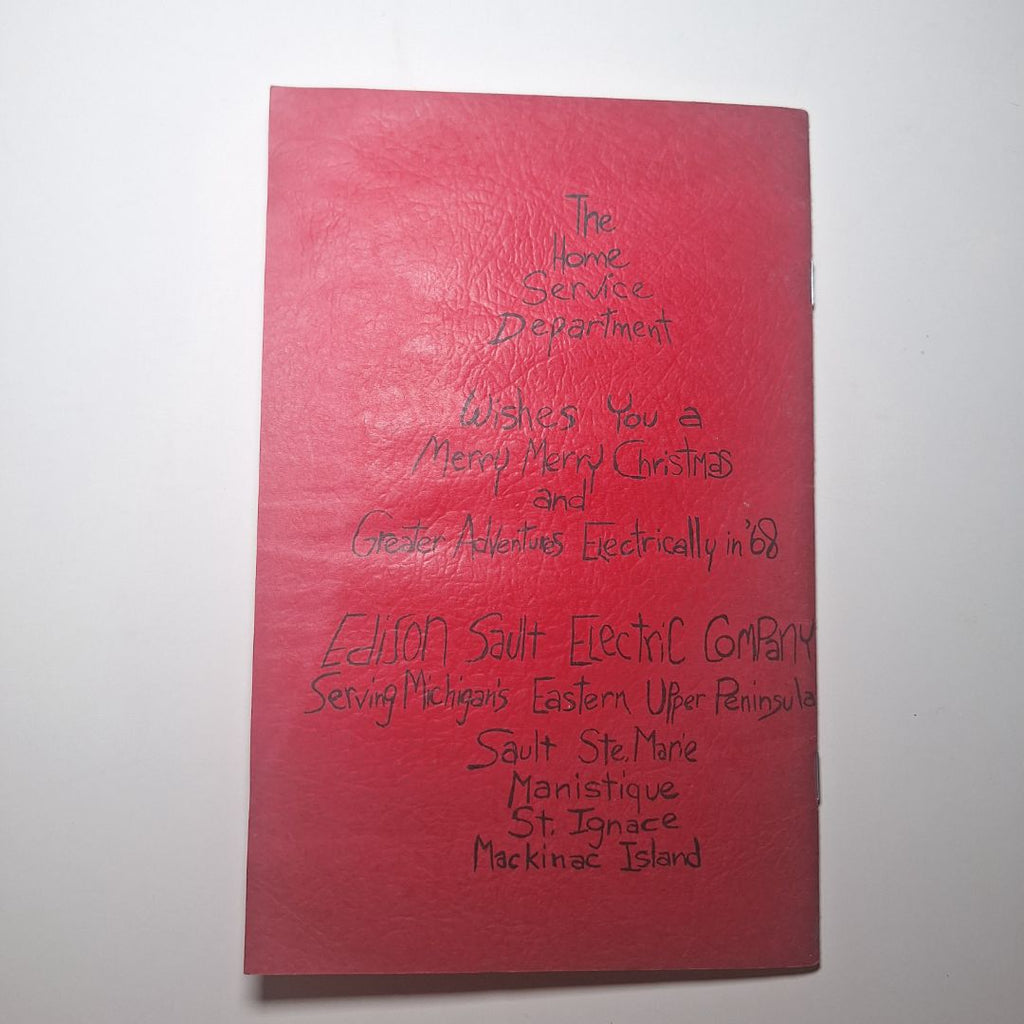 The
Home
Service
Department
Wishes You a
Merry Merry Christmas
and
Greater Adventures Electrically in '68
Edison Sault Electric Company
Serving Michigan's Eastern Upper Peninsula
Sault Ste. Marie
Manistique
St. Ignace
Mackinac Island